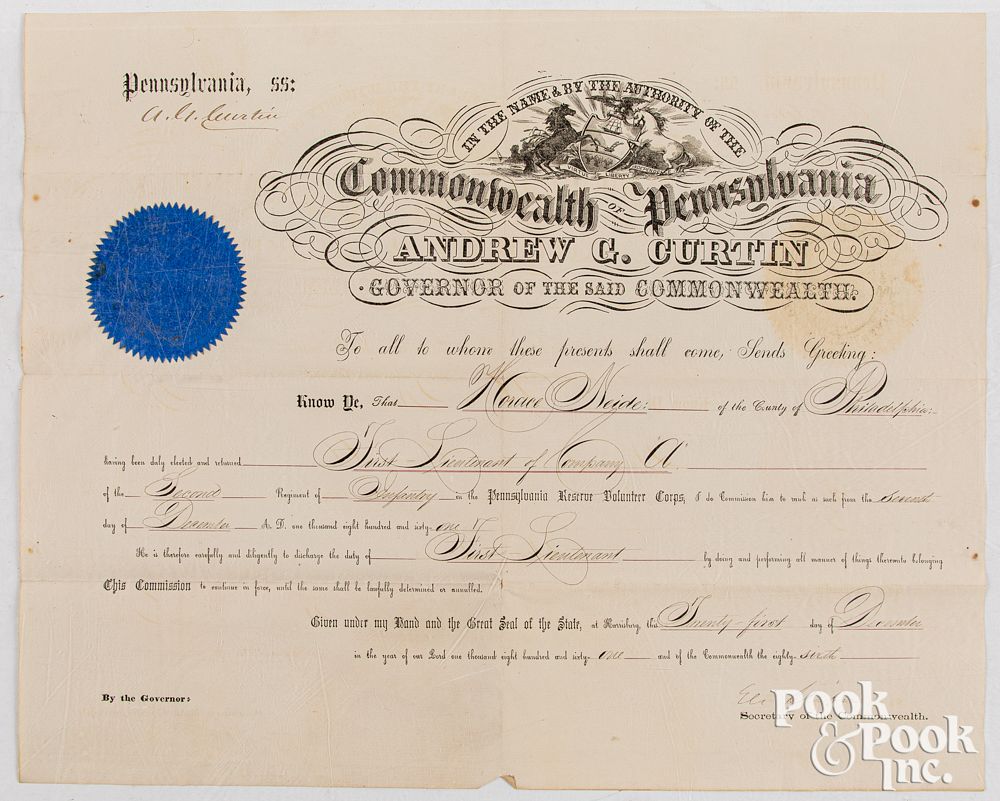 Pennsylvania, ss:
A. G. Curtin
IN THE NAME & BY THE AUTHORITY OF THE
LIBERTY
Commonwealth OF Pennsylvania
ANDREW G. CURTIN
GOVERNOR OF THE SAID COMMONWEALTH.
To all to whom these presents shall come, Sends Greeting:
Know Ye, That Horace Neide: of the County of Philadelphia:
having been duly elected and returned First Lieutenant of Company A
of the Second Regiment of Infantry in the Pennsylvania Reserve Volunteer Corps, I do Commission him to rank as such from the seventh
day of December A. D. one thousand eight hundred and sixty-one
He is therefore carefully and diligently to discharge the duty of First Lieutenant by doing and performing all manner of things thereunto belonging
This Commission to continue in force, until the same shall be lawfully determined or annulled.
Given under my Hand and the Great Seal of the State, at Harrisburg, this Twenty-first day of December
in the year of our Lord one thousand eight hundred and sixty-one and of the Commonwealth the eighty-sixth
By the Governor:
Eli
Secretary of the Commonwealth.
POOK
& POOK
INC.